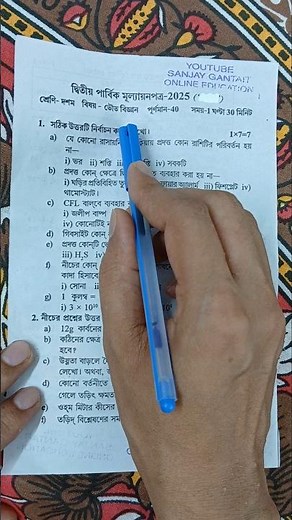 YOUTUBE
SANJAY GANTAIT
ONLINE EDUCATION
দ্বিতীয় পার্বিক মূল্যায়নপত্র-2025
শ্রেণি- দশম বিষয় - ভৌত বিজ্ঞান পূর্ণমান-40 সময়-1 ঘণ্টা 30 মিনিট
1. সঠিক উত্তরটি নির্বাচন 1×7=7
a) যে কোনো প্রদত্ত কোন রাশিটির পরিবর্তন হয়
না—
i) ভর ii) শক্তি iv) সবকটি
b) প্রদত্ত কোন্ ক্ষেত্রে ব্যবহার করা হয় না—
i) ঘড়ির প্রতিবিহিত iii) iv)
থার্মোস্ট্যাট।
c) CFL বাল্‌বে ব্যবহার
i) জলীয় বাষ্প
iv) কোনোটিই
d) গিবসাইট কোন্
e) প্রদত্ত কোন্‌টি
iii) H₂S iv)
f) নীচের কোন্
কাদা হিসাবে
i) সোনা ii)
g) 1 কুলম্ব =
i) 3 × 10
2. নীচের প্রশ্নের উত্তর
a) 12g কার্বনের
b) কঠিনের ক্ষেত্রে
হবে?
c) উষ্ণতা বাড়লে
লেখো। অথবা,
d) কোনো বর্তনীতে
গেলে তড়িৎ ক্ষমতা
e) ওহ্‌ম মিটার কীসের
f) তড়িদ্ বিশ্লেষণের